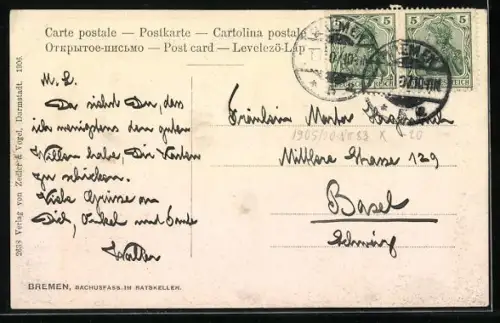 Carte postale — Postkarte — Cartolina postale
Открытое письмо — Post card — Levelező-Lap
BREMEN
5
5
REICH
M. L.
Da siehst Du, dss
ich wenigstens den guten
Willen habe, Dir Karten
zu schicken.
Viele Grüsse an
Dich, Onkel und Tante
Walter
Fräulein Marta
Mittlere Strasse 129
Basel
Schweiz
2638 Verlag von Zedler & Vogel, Darmstadt. 1906.
BREMEN, BACHUSFASS. IN RATSKELLER.